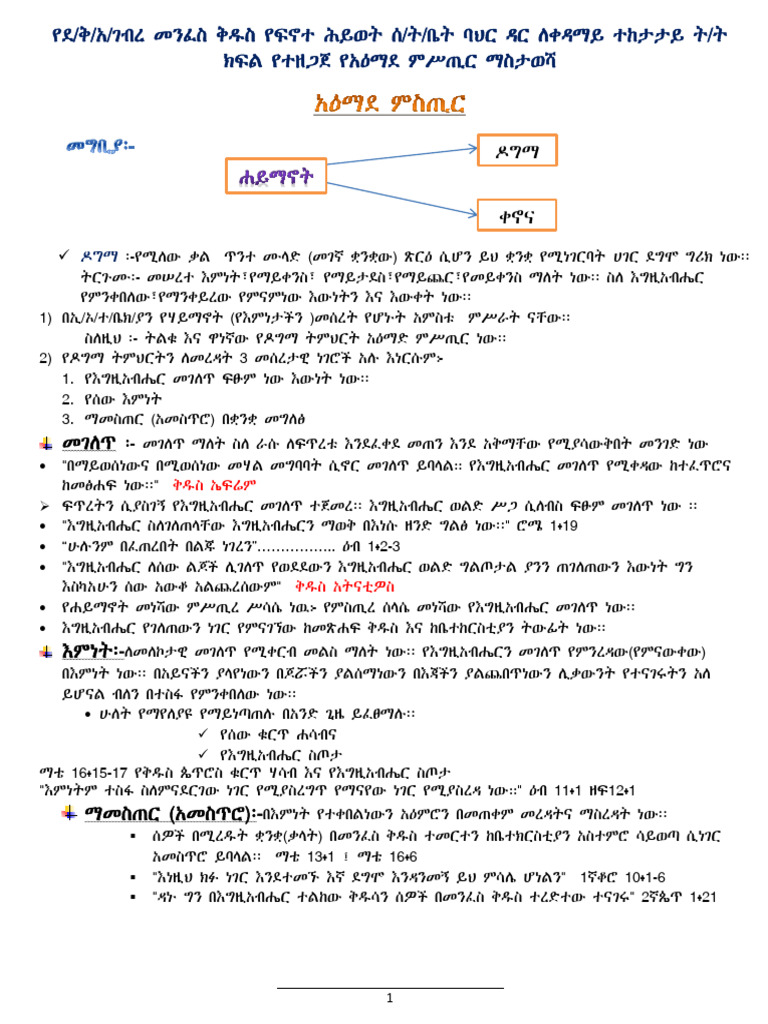 የደ/ቅ/አ/ገብረ መንፈስ ቅዱስ የፍኖተ ሕይወት ሰ/ት/ቤት ባህር ዳር ለቀዳማይ ተከታታይ ት/ት
ክፍል የተዘጋጀ የአዕማደ ምሥጢር ማስታወሻ
አዕማደ ምስጢር
መግቢያ:-
ዶግማ
ሐይማኖት
ቀኖና
✓ ዶግማ ፡-የሚለው ቃል ጥንተ ሙላድ (መገኛ ቋንቋው) ጽርዕ ሲሆን ይህ ቋንቋ የሚነገርባት ሀገር ደግሞ ግሪክ ነው።
ትርጉሙ፡- መሠረተ እምነት፣የማይቀንስ፣ የማይታደስ፣የማይጨር፣የመይቀንስ ማለት ነው። ስለ እግዚአብሔር
የምንቀበለው፣የማንቀይረው የምናምነው እውነትን እና እውቀት ነው።
1) በኢ/ኦ/ተ/ቤክ/ያን የሃይማኖት (የእምነታችን )መሰረት የሆኑት አምስቱ ምሥራት ናቸው።
ስለዚህ ፡- ትልቁ እና ዋነኛው የዶግማ ትምህርት አዕማድ ምሥጢር ነው።
2) የዶግማ ትምህርትን ለመረዳት 3 መሰረታዊ ነገሮች አሉ እነርሱም፦
1. የእግዚአብሔር መገለጥ ፍፁም ነው እውነት ነው።
2. የሰው እምነት
3. ማመስጠር (አመስጥሮ) በቋንቋ መግለፅ
መገለጥ ፡- መገለጥ ማለት ስለ ራሱ ለፍጥረቱ እንደፈቀደ መጠን እንደ አቅማቸው የሚያሳውቅበት መንገድ ነው
• "በማይወሰነውና በሚወሰነው መሃል መግባባት ሲኖር መገለጥ ይባላል። የእግዚአብሔር መገለጥ የሚቀዳው ከተፈጥሮና
ከመፅሐፍ ነው።" ቅዱስ ኤፍሬም
➢ ፍጥረትን ሲያስገኝ የእግዚአብሔር መገለጥ ተጀመረ። እግዚአብሔር ወልድ ሥጋ ሲለብስ ፍፁም መገለጥ ነው ።
• "እግዚአብሔር ስለገለጠላቸው እግዚአብሔርን ማወቅ በእነሱ ዘንድ ግልፅ ነው።" ሮሜ 1፥19
• "ሁሉንም በፈጠረበት በልጁ ነገረን"…………….. ዕብ 1፥2-3
• "እግዚአብሔር ለሰው ልጆች ሊገለጥ የወደደውን እግዚአብሔር ወልድ ግልጦታል ያንን ጠገለጠውን እውነት ግን
እስካአሁን ሰው አውቆ አልጨረሰውም" ቅዱስ አትናቲዎስ
• የሐይማኖት መነሻው ምሥጢረ ሥሳሴ ነዉ፦ የምስጢረ ሰላሴ መነሻው የእግዚአብሔር መገለጥ ነው።
• እግዚአብሔር የገለጠውን ነገር የምናገኘው ከመጽሐፍ ቅዱስ እና ከቤተከርስቲያን ትውፊት ነው።
እምነት፡-ለመለኮታዊ መገለጥ የሚቀርብ መልስ ማለት ነው። የእግዚአብሔርን መገለጥ የምንረዳው(የምናውቀው)
በእምነት ነው። በአይናችን ያላየነውን በጆሯችን ያልሰማነውን በእጃችን ያልጨበጥነውን ሊቃውንት የተናገሩትን አለ
ይሆናል ብለን በተስፋ የምንቀበለው ነው።
• ሁለት የማየለያዩ የማይነጣጠሉ በአንድ ጊዜ ይፈፀማሉ።
✓ የሰው ቁርጥ ሐሳብና
✓ የእግዚአብሔር ስጦታ
ማቴ 16፥15-17 የቅዱስ ጴጥሮስ ቁርጥ ሃሳብ እና የእግዚአብሔር ስጦታ
"እምነትም ተስፋ ስለምናደርገው ነገር የሚያስረግጥ የማናየው ነገር የሚያስረዳ ነው።" ዕብ 11፥1 ዘፍ12፥1
ማመስጠር (አመስጥሮ)፡-በእምነት የተቀበልነውን አዕምሮን በመጠቀም መረዳትና ማስረዳት ነው።
▪ ሰዎች በሚረዱት ቋንቋ(ቃላት) በመንፈስ ቅዱስ ተመርተን ከቤተክርስቲያን አስተምሮ ሳይወጣ ሲነገር
አመስጥሮ ይባላል። ማቴ 13፥1 ፤ ማቴ 16፥6
▪ "እነዚህ ክፉ ነገር እንደተመኙ እኛ ደግሞ እንዳንመኝ ይህ ምሳሌ ሆነልን" 1ኛቆሮ 10፥1-6
▪ "ዳኑ ግን በእግዚአብሔር ተልከው ቅዱሳን ሰዎች በመንፈስ ቅዱስ ተረድተው ተናገሩ" 2ኛጴጥ 1፥21
1